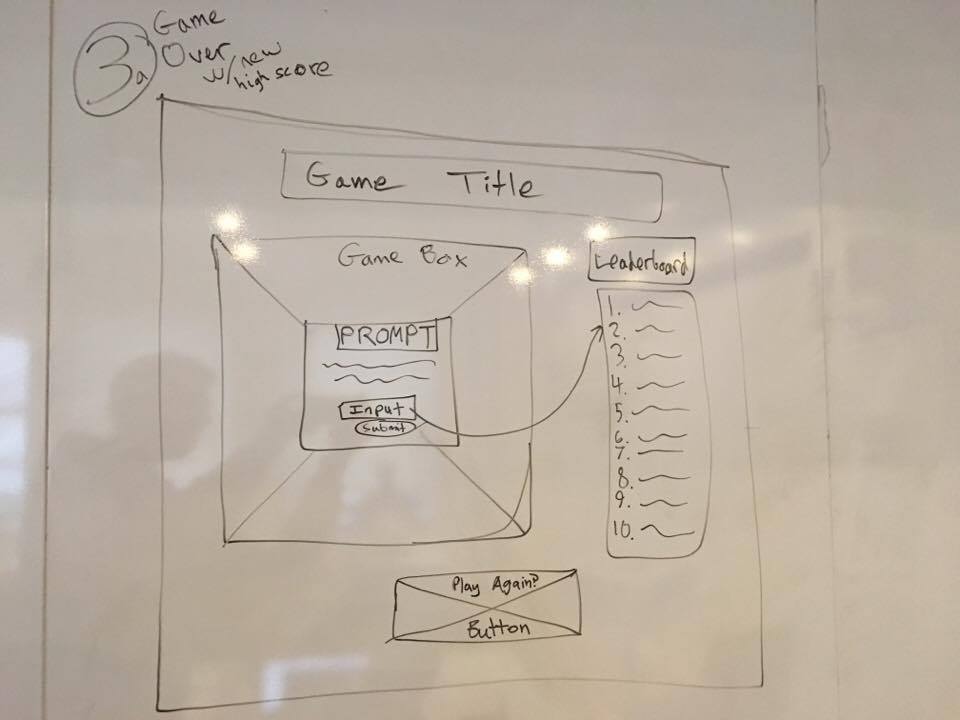 3a
Game
Over
w/new
high score
Game Title
Game Box
PROMPT
Input
Submit
Leaderboard
1.
2.
3.
4.
5.
6.
7.
8.
9.
10.
Play Again?
Button